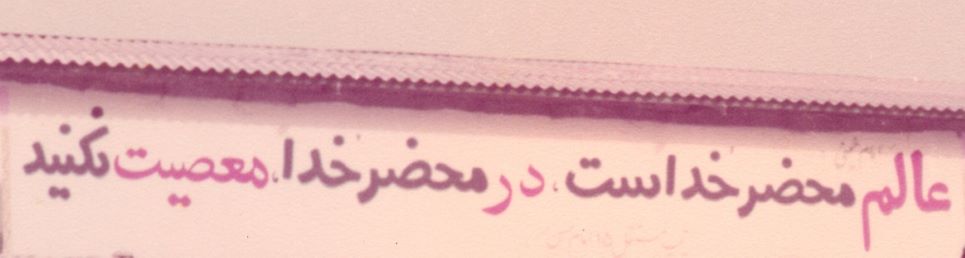 عالم محضر خداست، در محضر خدا، معصیت نکنید